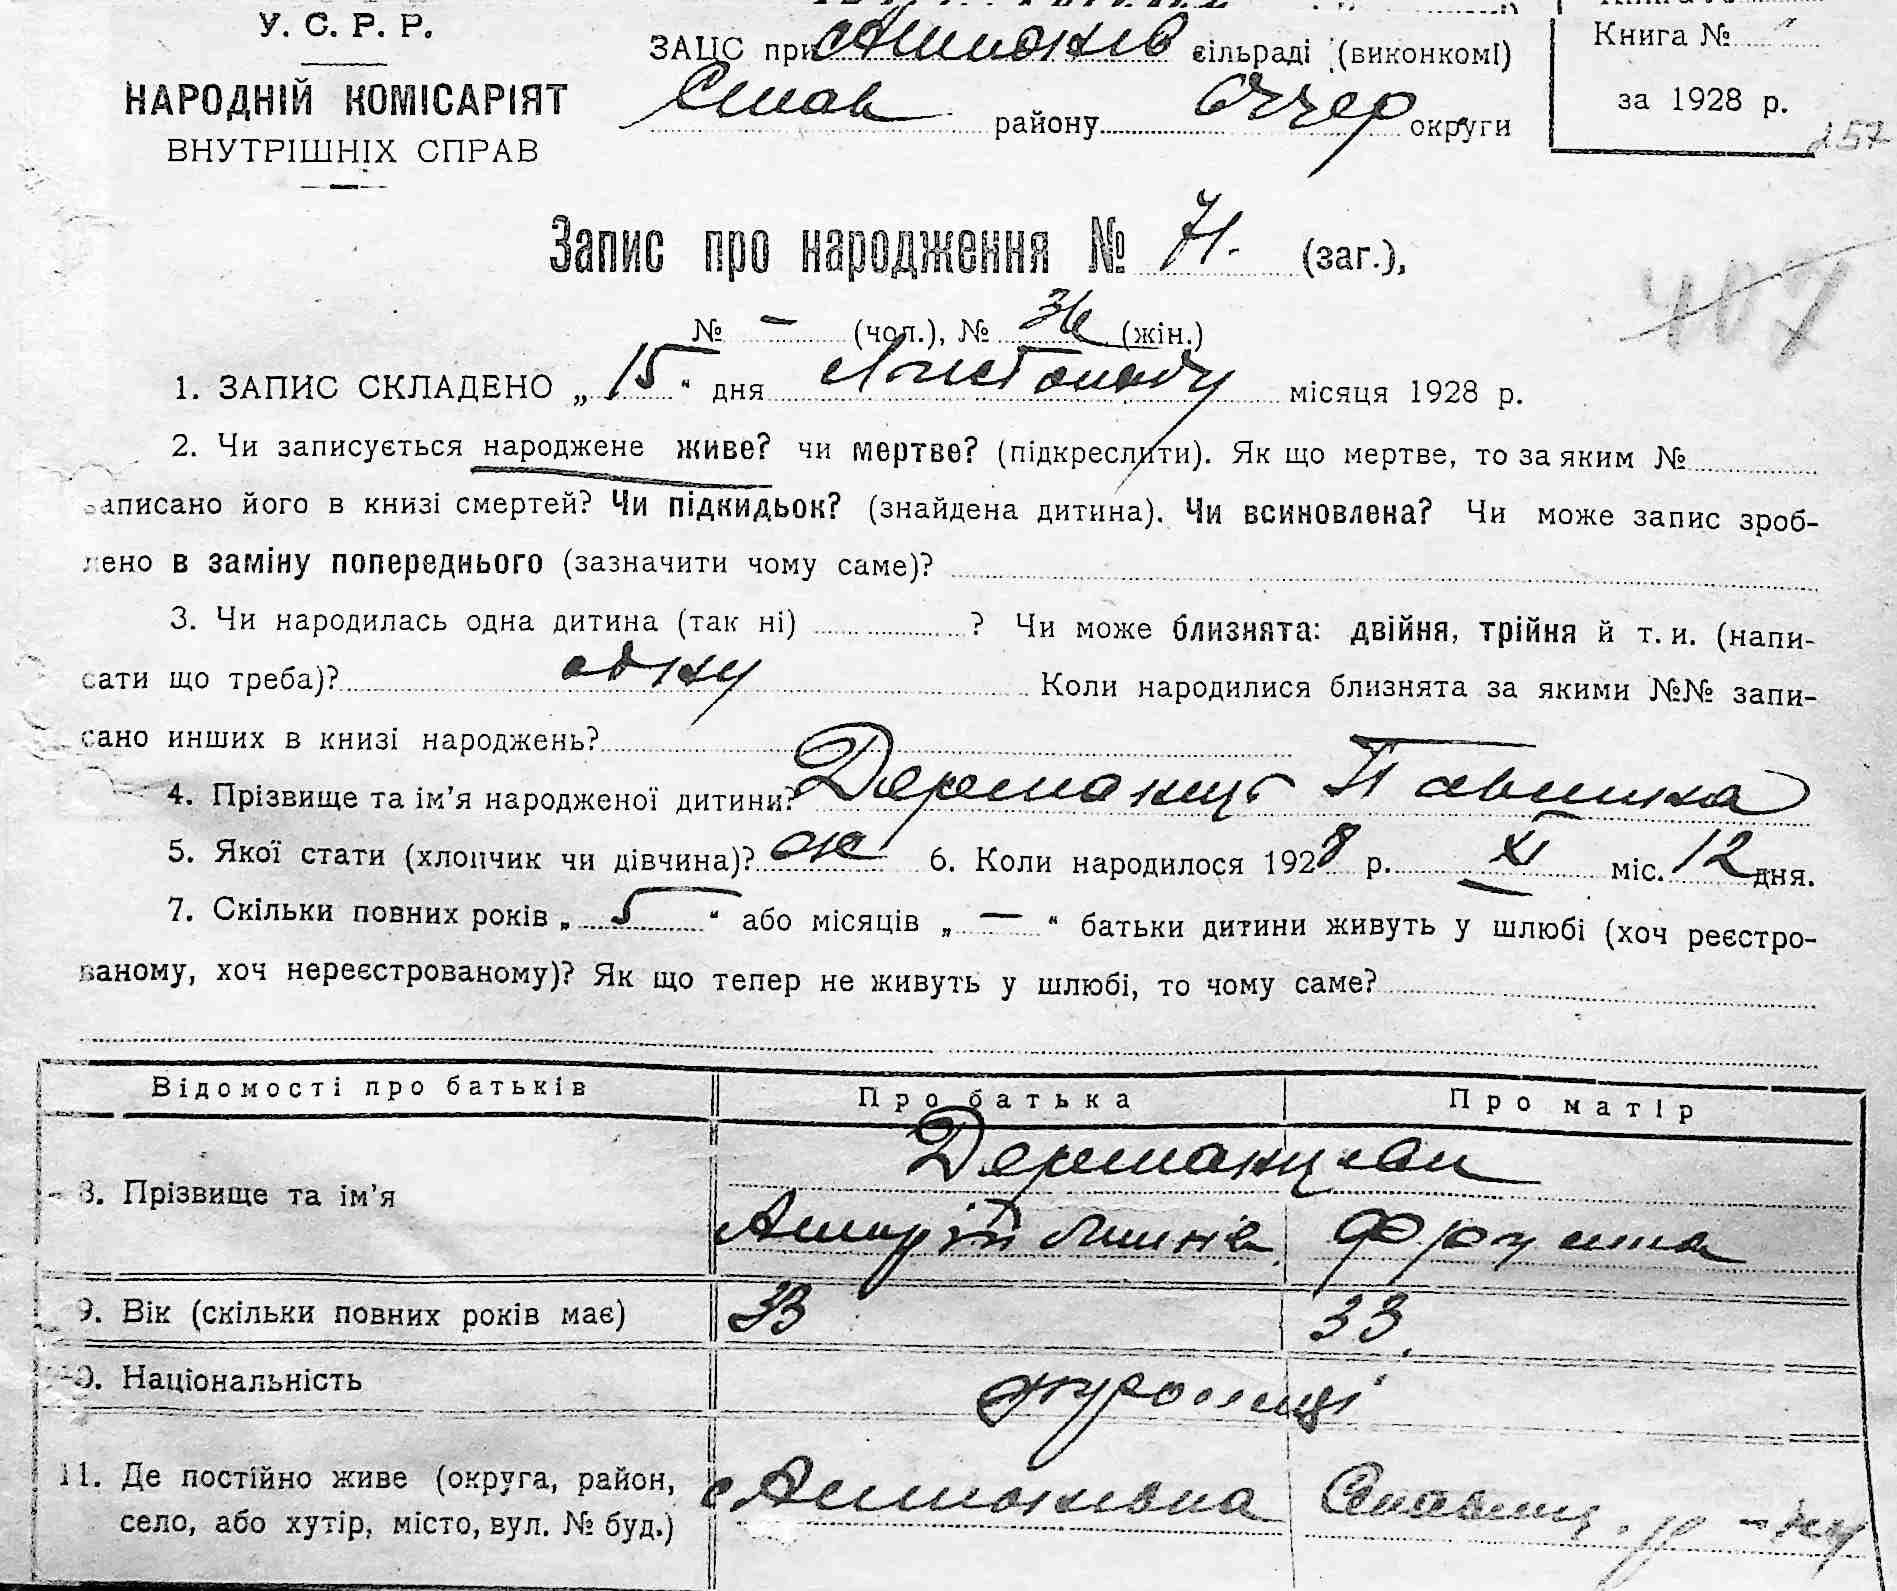 У. С. Р. Р.
НАРОДНІЙ КОМІСАРІЯТ
ВНУТРІШНІХ СПРАВ
ЗАЦС при сільраді (виконкомі)
Став району округи
Книга №
за 1928 р.
257
Запис про народження № 71. (заг.),
407
№ – (чол.), № 36 (жін.)
1. ЗАПИС СКЛАДЕНО „ 15 " дня Листопаду місяця 1928 р.
2. Чи записується народжене живе? чи мертве? (підкреслити). Як що мертве, то за яким №
записано його в книзі смертей? Чи підкидьок? (знайдена дитина). Чи всиновлена? Чи може запис зроб-
лено в заміну попереднього (зазначити чому саме)?
3. Чи народилась одна дитина (так ні) ? Чи може близнята: двійня, трійня й т. и. (напи-
сати що треба)? одну Коли народилися близнята за якими №№ запи-
сано инших в книзі народжень?
4. Прізвище та ім'я народженої дитини? Павлина
5. Якої стати (хлопчик чи дівчина)? ж 6. Коли народилося 1928 р. XI міс. 12 дня.
7. Скільки повних років „ 5 " або місяців „ — " батьки дитини живуть у шлюбі (хоч реєстро-
ваному, хоч нереєстрованому)? Як що тепер не живуть у шлюбі, то чому саме?
Відомості про батьків Про батька Про матір
8. Прізвище та ім'я
9. Вік (скільки повних років має) 33 33.
10. Національність
11. Де постійно живе (округа, район,
село, або хутір, місто, вул. № буд.)